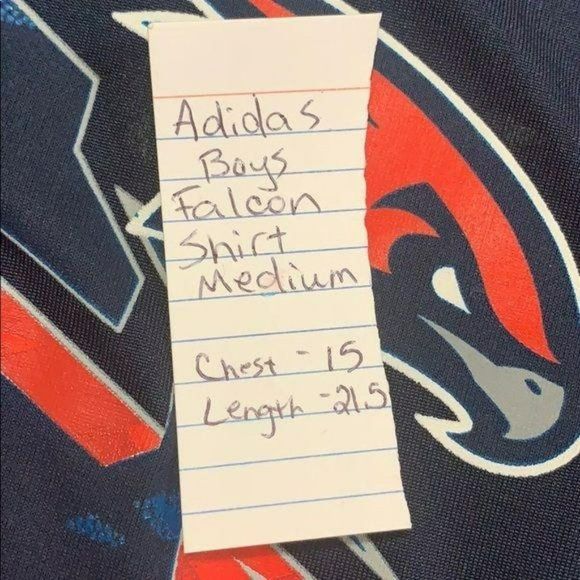 Adidas
Boys
Falcon
Shirt
Medium
Chest - 15
Length - 21.5